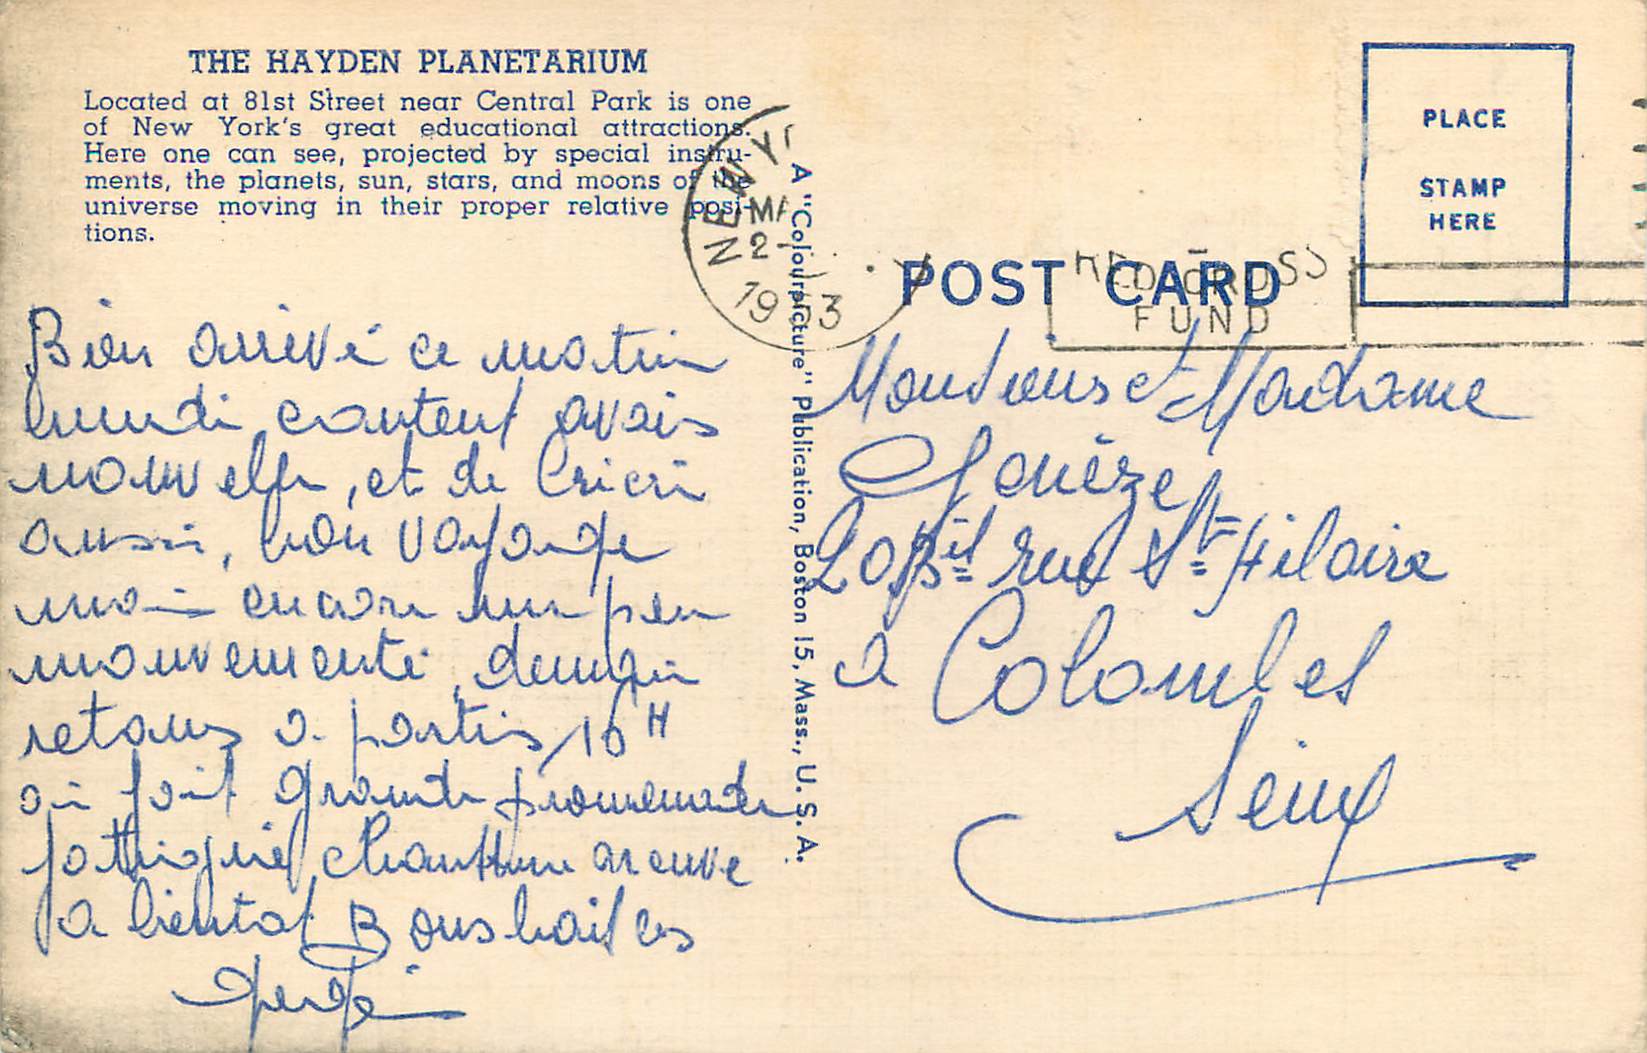 THE HAYDEN PLANETARIUM
Located at 81st Street near Central Park is one
of New York's great educational attractions.
Here one can see, projected by special instru-
ments, the planets, sun, stars, and moons of the
universe moving in their proper relative posi-
tions.
NEW Y
MA
2-
19 53
A "Colourpicture" Publication, Boston 15, Mass., U. S. A.
PLACE
STAMP
HERE
POST CARD
RED CROSS
FUND
Bien arrivé ce matin
lundi content avais
nouvelle, et de Cricri
aussi, bon voyage
mais encore un peu
mouvementé, demain
retour a partir 16H
ai fait grande promenade
fatigué
a bientot Bons baisers
Monsieur et Madame
20 bis rue St Hilaire
a Colombes
Seine